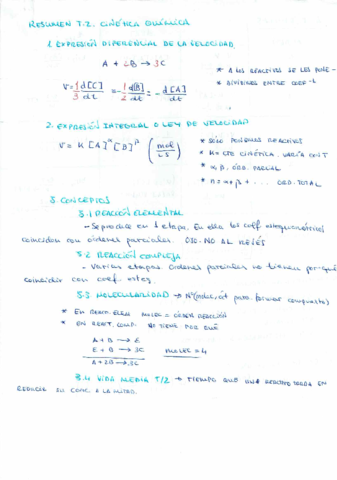 RESUMEN T.2. CINÉTICA QUÍMICA
1. EXPRESIÓN DIFERENCIAL DE LA VELOCIDAD
A + 2B → 3C
V = 1/3 d[C]/dt = -1/2 d[B]/dt = - d[A]/dt
* A LOS REACTIVOS SE LES PONE -
* DIVIDIMOS ENTRE COEF-
2. EXPRESIÓN INTEGRAL O LEY DE VELOCIDAD
V = K [A]^α [B]^β (mol/L·S)
* SÓLO PONEMOS REACTIVOS
* K = CTE CINÉTICA. VARÍA CON T
* α, β. ORD. PARCIAL
* n = α + β + ... ORD. TOTAL
3. CONCEPTOS
3.1 REACCIÓN ELEMENTAL
- Se produce en 1 etapa. En ella los coff estequiométricos
coinciden con órdenes parciales. OJO. NO AL REVÉS
3.2 REACCIÓN COMPLEJA
- Varias etapas. Ordenes parciales no tienen por qué
coincidir con coef. esteq.
3.3 MOLECULARIDAD → Nº (molec, át para formar compuesto)
* EN REACC. ELEM MOLEC = ORDEN REACCIÓN
* EN REACT. COMP. NO TIENE POR QUÉ
A + B → E
E + B → 3C
MOLEC = 4
A + 2B → 3C
3.4 VIDA MEDIA T/2 → TIEMPO QUE UN REACTIVO TARDA EN
REDUCIR SU CONC. A LA MITAD.